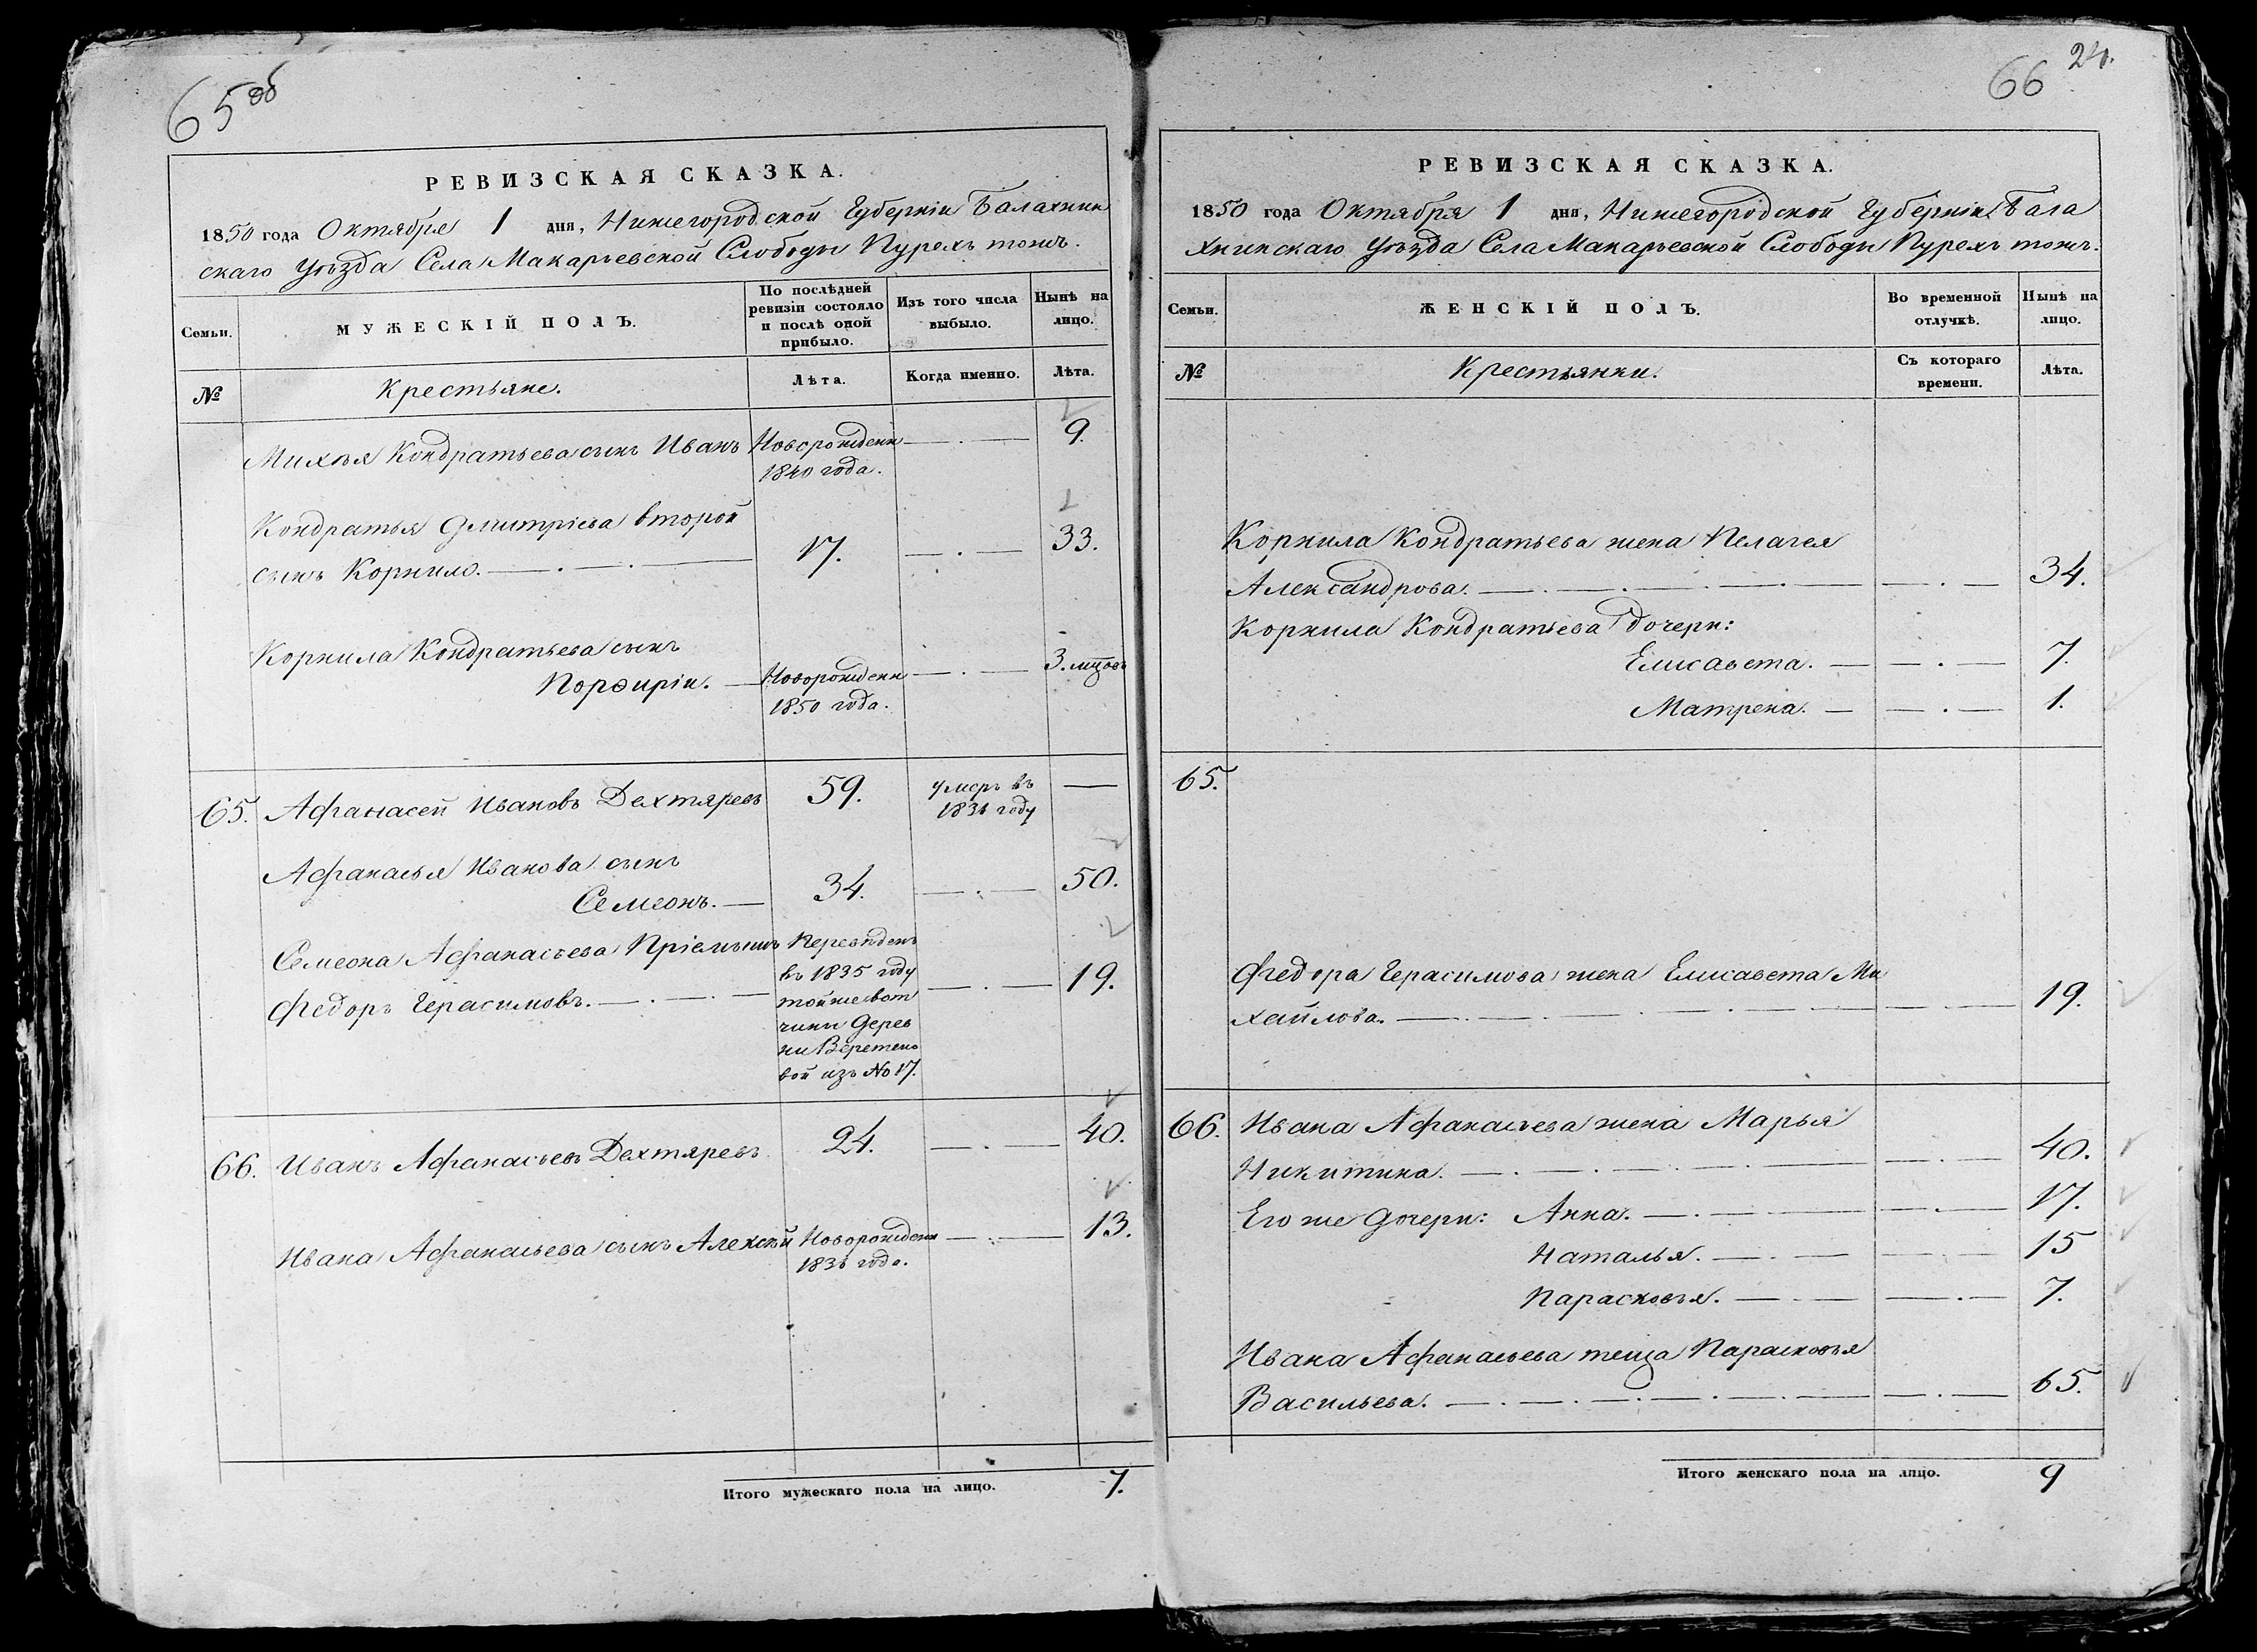 65 об
РЕВИЗСКАЯ СКАЗКА.
1850 года Октября 1 дня, Нижегородской Губерніи Балахнин
скаго Уѣзда Села Макарьевской Слободы Пурехъ тожъ.
Семьи.
МУЖЕСКІЙ ПОЛЪ.
По послѣдней
ревизіи состояло
и послѣ оной
прибыло.
Изъ того числа
выбыло.
Нынѣ на
лицо.
№
Крестьяне.
Лѣта.
Когда именно.
Лѣта.
Михея Кондратьева сынъ Иванъ Новорожденн 9.
1840 года.
Кондратья Дмитріева второй
сынъ Корнило. 17. 33.
Корнила Кондратьева сынъ
Порѳирій. Новорожденн 3. мцовъ
1850 года.
65. Афанасей Ивановъ Дехтяревъ 59. умеръ въ —
году
Афанасья Иванова сынъ
Семеонъ. 34. 50.
Семеона Афанасьева Пріемышъ Переведенъ
въ 1835 году
Федоръ Герасимовъ. тойже вот 19.
чины Дерев
ни Веретено
вой изъ № 17.
66. Иванъ Афанасьевъ Дехтяревъ 24. 40.
Ивана Афанасьева сынъ Алексѣй Новорожденн 13.
года.
Итого мужескаго пола на лицо. 7.
66 24.
РЕВИЗСКАЯ СКАЗКА.
1850 года Октября 1 дня, Нижегородской Губерніи Бала
хнинскаго Уѣзда Села Макарьевской Слободы Пурехъ тожъ.
Семьи.
ЖЕНСКІЙ ПОЛЪ.
Во временной
отлучкѣ.
Нынѣ на
лицо.
№
Крестьянки.
Съ котораго
времени.
Лѣта.
Корнила Кондратьева жена Пелагея
Александрова. 34.
Корнила Кондратьева дочери:
Елисавета. 7.
Матрена. 1.
65.
Федора Герасимова жена Елисавета Ми
хайлова. 19.
66. Ивана Афанасьева жена Марья
Никитина. 40.
Его же Дочери: Анна. 17.
Наталья. 15
Парасковья. 7.
Ивана Афанасьева теща Парасковья
Васильева. 65.
Итого женскаго пола на лицо. 9